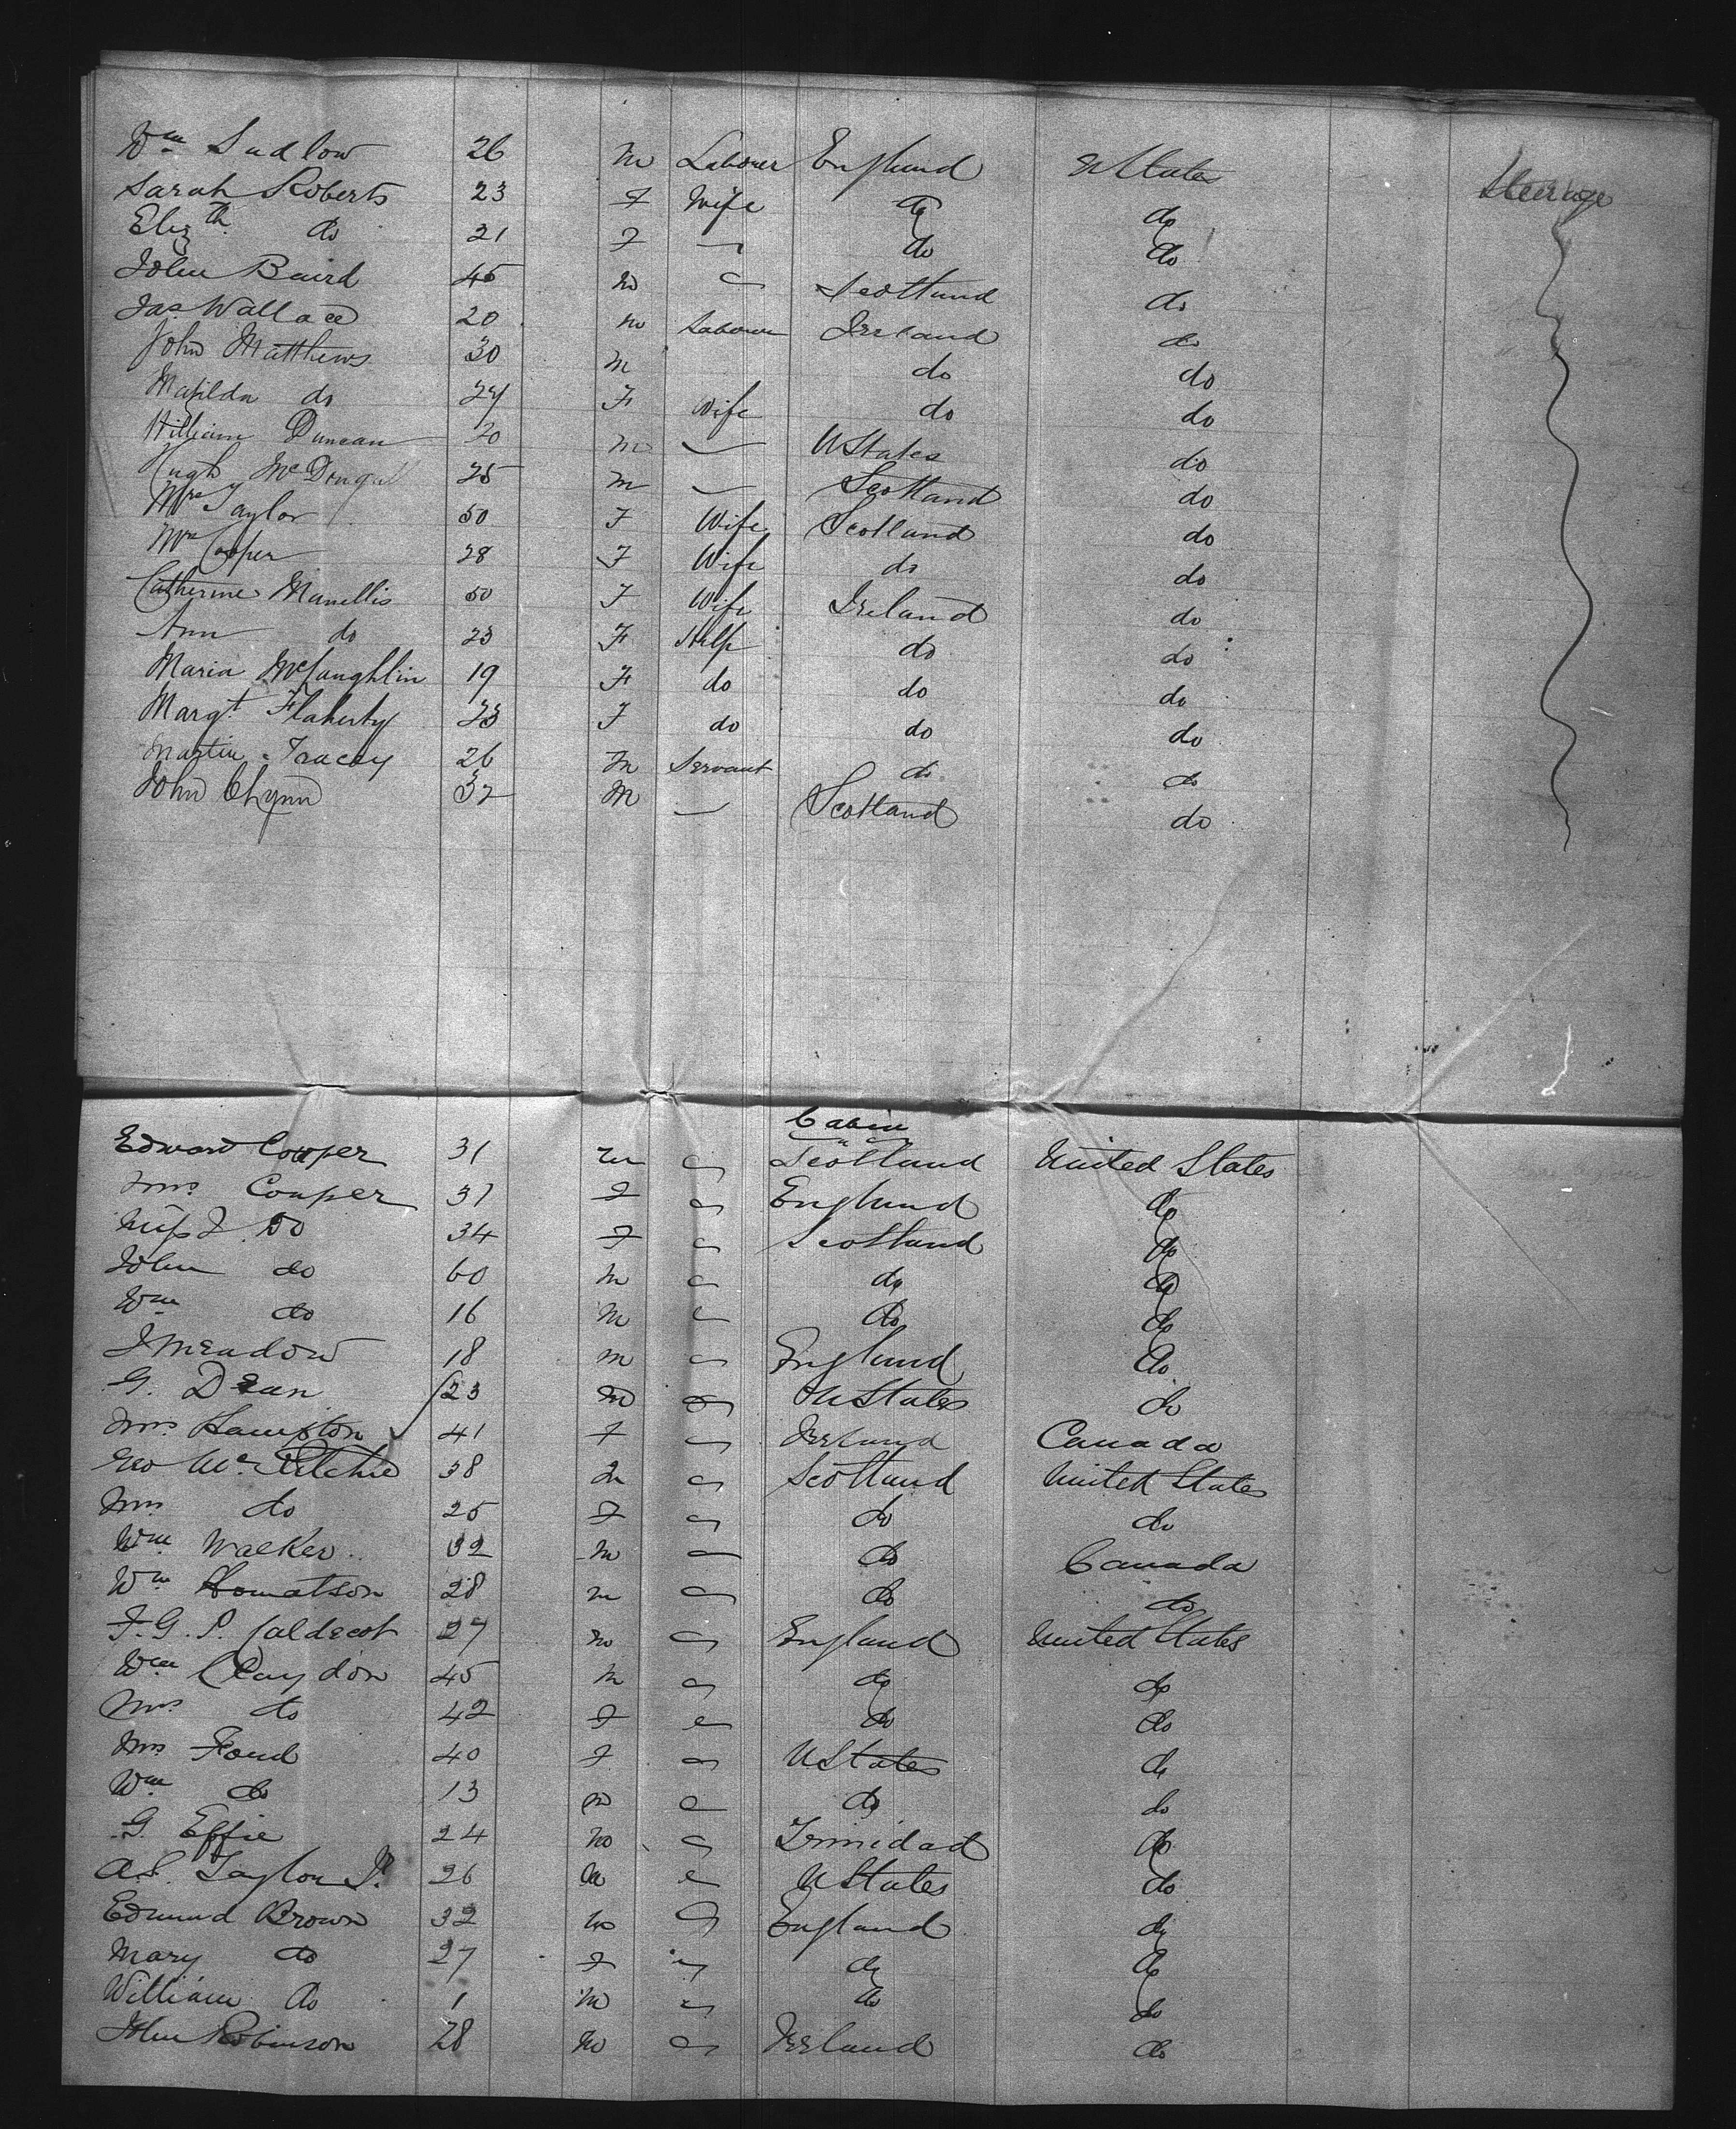 Wm Sudlow 26 m Labourer England U States Steerage
Sarah Roberts 23 F Wife do do
Elizth do 21 F " do do
John Baird 45 m " Scotland do
Jas Wallace 20 m Labourer Ireland do
John Matthews 30 m do do
Matilda do 24 F Wife do do
William Duncan 30 m " U States do
Hugh McDougall 25 m " Scotland do
Mrs Taylor 50 F Wife Scotland do
Mrs Cooper 28 F Wife do do
Catherine Manellis 50 F Wife Ireland do
Ann do 23 F Help do do
Maria McLaughlin 19 F do do do
Margt Flaherty 23 F do do do
Martin Tracey 26 m Servant do do
John Chynn 32 m " Scotland do
Cabin
Edward Couper 31 m " Scotland United States
Mrs Couper 31 F " England do
Miss J. Do 34 F " Scotland do
John do 60 m " do do
Wm do 16 m " do do
J Meadow 18 m " England do
G. Dean 23 m " U States do
Mrs Hampton 41 F " Ireland Canada
Geo McRitchie 38 m " Scotland United States
Mrs do 25 F " do do
Wm Walker 32 m " do Canada
Wm 28 m " do do
F. G. S. Caldecot 27 m " England United States
Wm Claydon 45 m " do do
Mrs do 42 F " do do
Mrs 40 F " U States do
Wm do 13 m " do do
G. Effie 24 m " Trinidad do
A.S. Taylor Jr. 26 m " U States do
Edmund Brown 32 m " England do
Mary do 27 F " do do
William do 1 m " do do
John Robinson 28 m " Ireland do